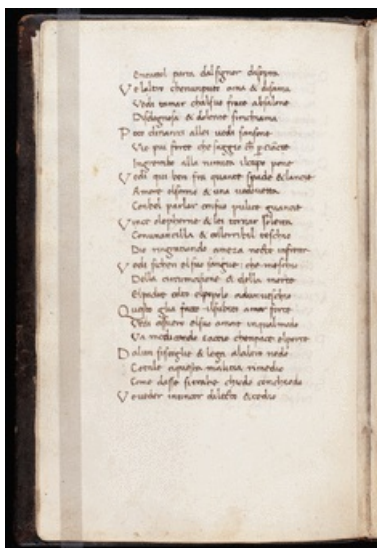 dal signor disopra
Ve laltro chenunpunto ama & disama
Vedi tamar chalsuo frate absalone
Disdegnosa & dolente sirichiama
Poco dinanzi allei vedi sansone
Vie piu forte che saggio ch p ciance
Ingrembo alla nimica ilcapo pone
Vedi qui ben fra quante spade & lancie
Amore elsonno & una vedovetta
Conbel parlar consue pulite guancie
Vince olopherne & lei tornar soletta
Conunancilla & collorribil teschio
Dio ringratiando ameza nocte infretta
Vedi sichen elsuo sangue che meschio
Della circumcisione & della morte
Elpadre colto elpopolo adunveschio
Questo glia facto ilsubito amar forte
Vedi assuero elsuo amore inqualmodo
Va medicando accio chenpace elporte
Dalun siscioglie & lega alaltro nodo
Cotale aquesta malitia rimedio
Come dasse sitrahe chiodo conchiodo
Vuoveder diletto & tedio